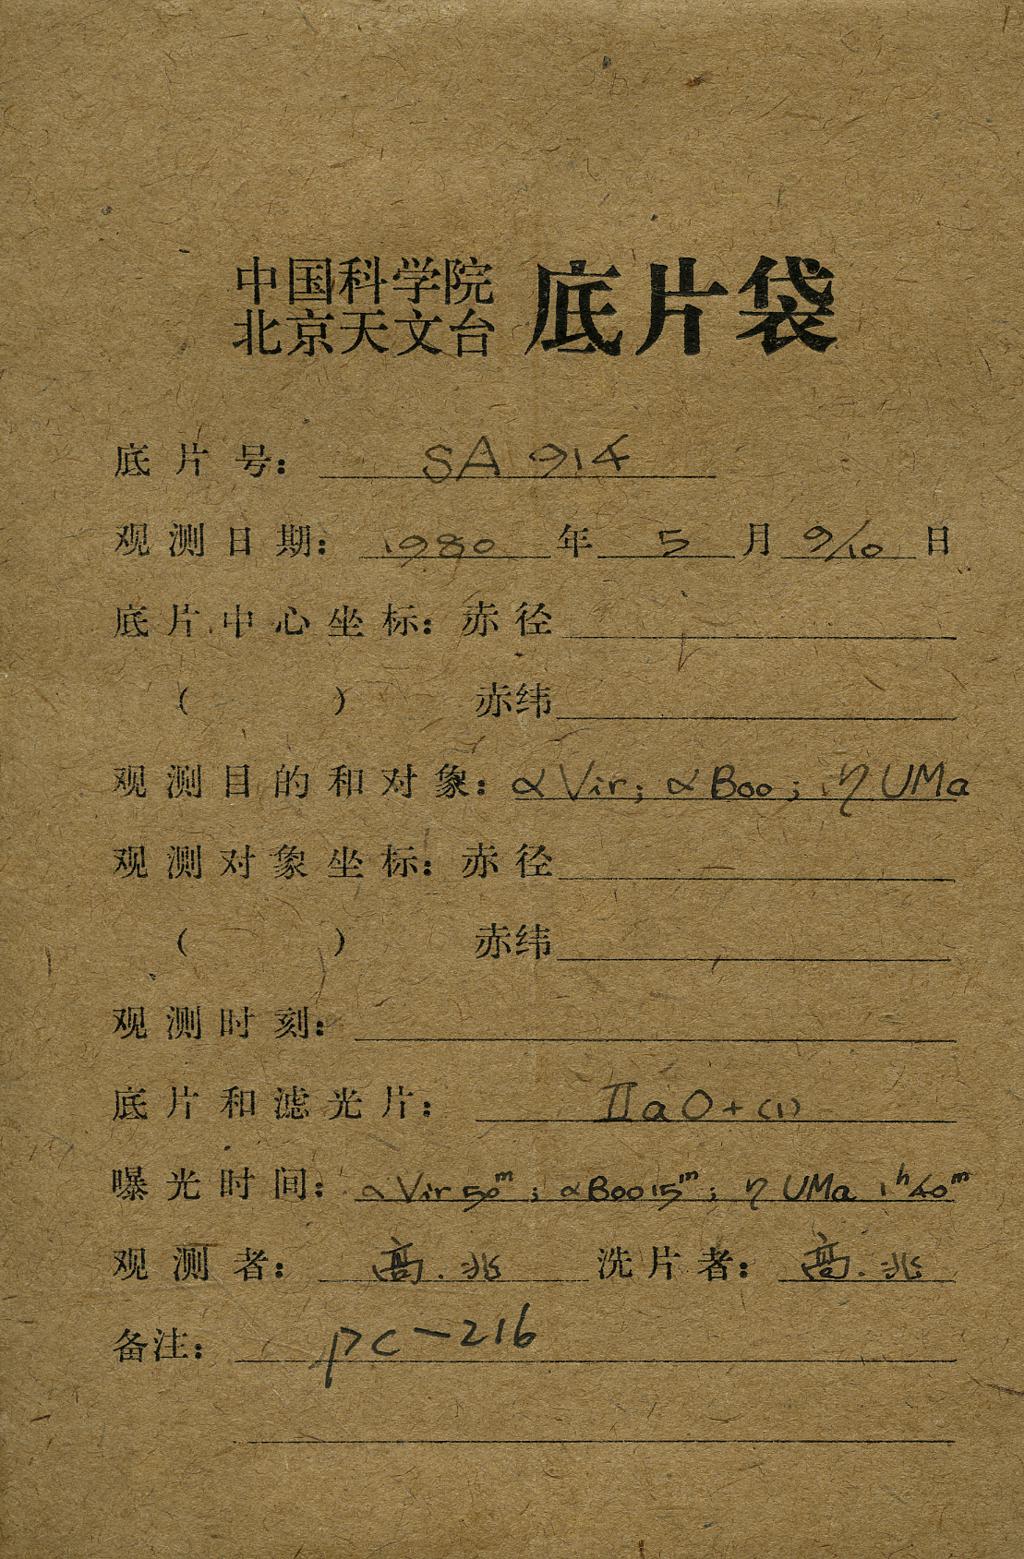 中国科学院
北京天文台 底片袋
底片号: SA 914
观测日期: 1980 年 5 月 9/10 日
底片中心坐标: 赤径
( ) 赤纬
观测目的和对象: α Vir; α Boo; η UMa
观测对象坐标: 赤径
( ) 赤纬
观测时刻:
底片和滤光片: ⅡaO+(1)
曝光时间: α Vir 50ᵐ; α Boo 15ᵐ; η UMa 1ʰ40ᵐ
观测者: 高.兆 洗片者: 高.兆
备注: pc-216